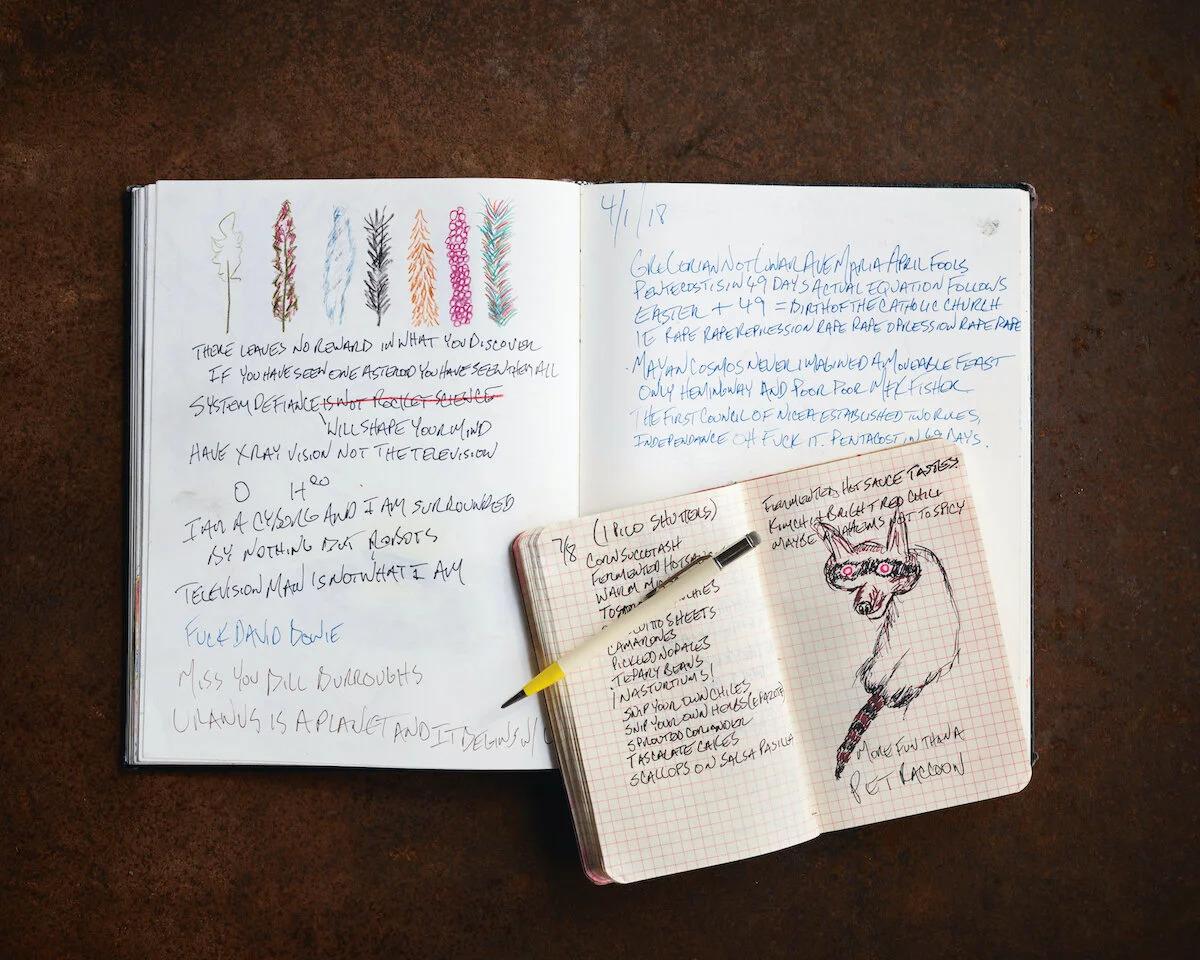 THERE LEAVES NO REWARD IN WHAT YOU DISCOVER
IF YOU HAVE SEEN ONE ASTEROID YOU HAVE SEEN THEM ALL
SYSTEM DEFIANCE IS NOT ROCKET SCIENCE
WILL SHAPE YOUR MIND
HAVE XRAY VISION NOT THE TELEVISION
I AM A CYBORG AND I AM SURROUNDED
BY NOTHING BUT ROBOTS
TELEVISION MAN IS NOT WHAT I AM
FUCK DAVID BOWIE
MISS YOU BILL BURROUGHS
URANUS IS A PLANET AND IT BEGINS W/
4/1/18
GREGORIAN NOT LUNAR AVE MARIA APRIL FOOLS
PENTECOST IS IN 49 DAYS ACTUAL EQUATION FOLLOWS
EASTER + 49 = BIRTH OF THE CATHOLIC CHURCH
IE RAPE RAPE REPRESSION RAPE RAPE OPRESSION RAPE RAPE
MAYAN COSMOS NEVER IMAGINED A MOVEABLE FEAST
ONLY HEMINGWAY AND POOR POOR MFK FISHER
THE FIRST COUNCIL OF NICEA ESTABLISHED TWO RULES,
INDEPENDANCE OH FUCK IT. PENTACOST IN 49 DAYS.
7/8 (1 PICO SHUTTERS)
CORN SUCCETASH
FERMENTED HOT
WARM
CAMARONES
PICKLED NOPALES
TEPARY BEANS
¡NASTURTIUMS!
SNIP YOUR OWN CHILES
SNIP YOUR OWN HERBS (EPAZOTE)
SPROUTED CORIANDER
TASCALATE CAKES
SCALLOPS ON SALSA PASILLA
FERMENTED HOT SAUCE TASTES
KIMCHI BRIGHT RED CHILI
MAYBE NOT TO SPICY
MORE FUN THAN A
PET RACCOON